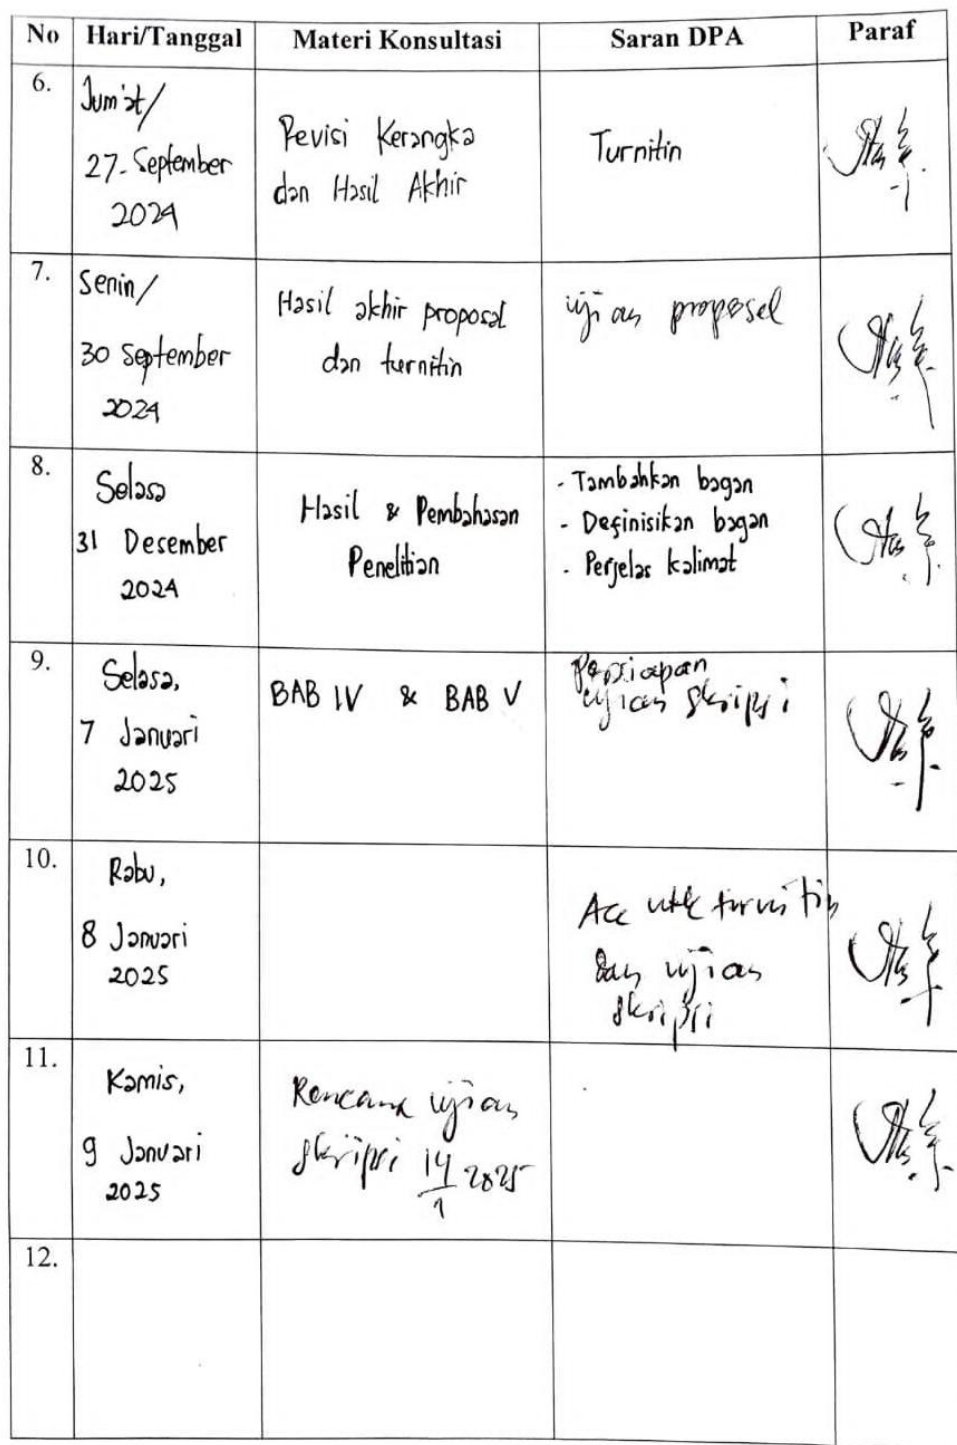 No Hari/Tanggal Materi Konsultasi Saran DPA Paraf
6.
Jum'at/
27-September
2024
Revisi Kerangka
dan Hasil Akhir
Turnitin
7.
Senin/
30 September
2024
Hasil akhir proposal
dan turnitin
ujian proposal
8.
Selasa
31 Desember
2024
Hasil & Pembahasan
Penelitian
- Tambahkan bagan
- Definisikan bagan
- Perjelas kalimat
9.
Selasa,
7 Januari
2025
BAB IV & BAB V
Persiapan
ujian skripsi
10.
Rabu,
8 Januari
2025
Acc utk turnitin
dan ujian
skripsi
11.
Kamis,
9 Januari
2025
Rencana ujian
skripsi 14/1 2025
12.